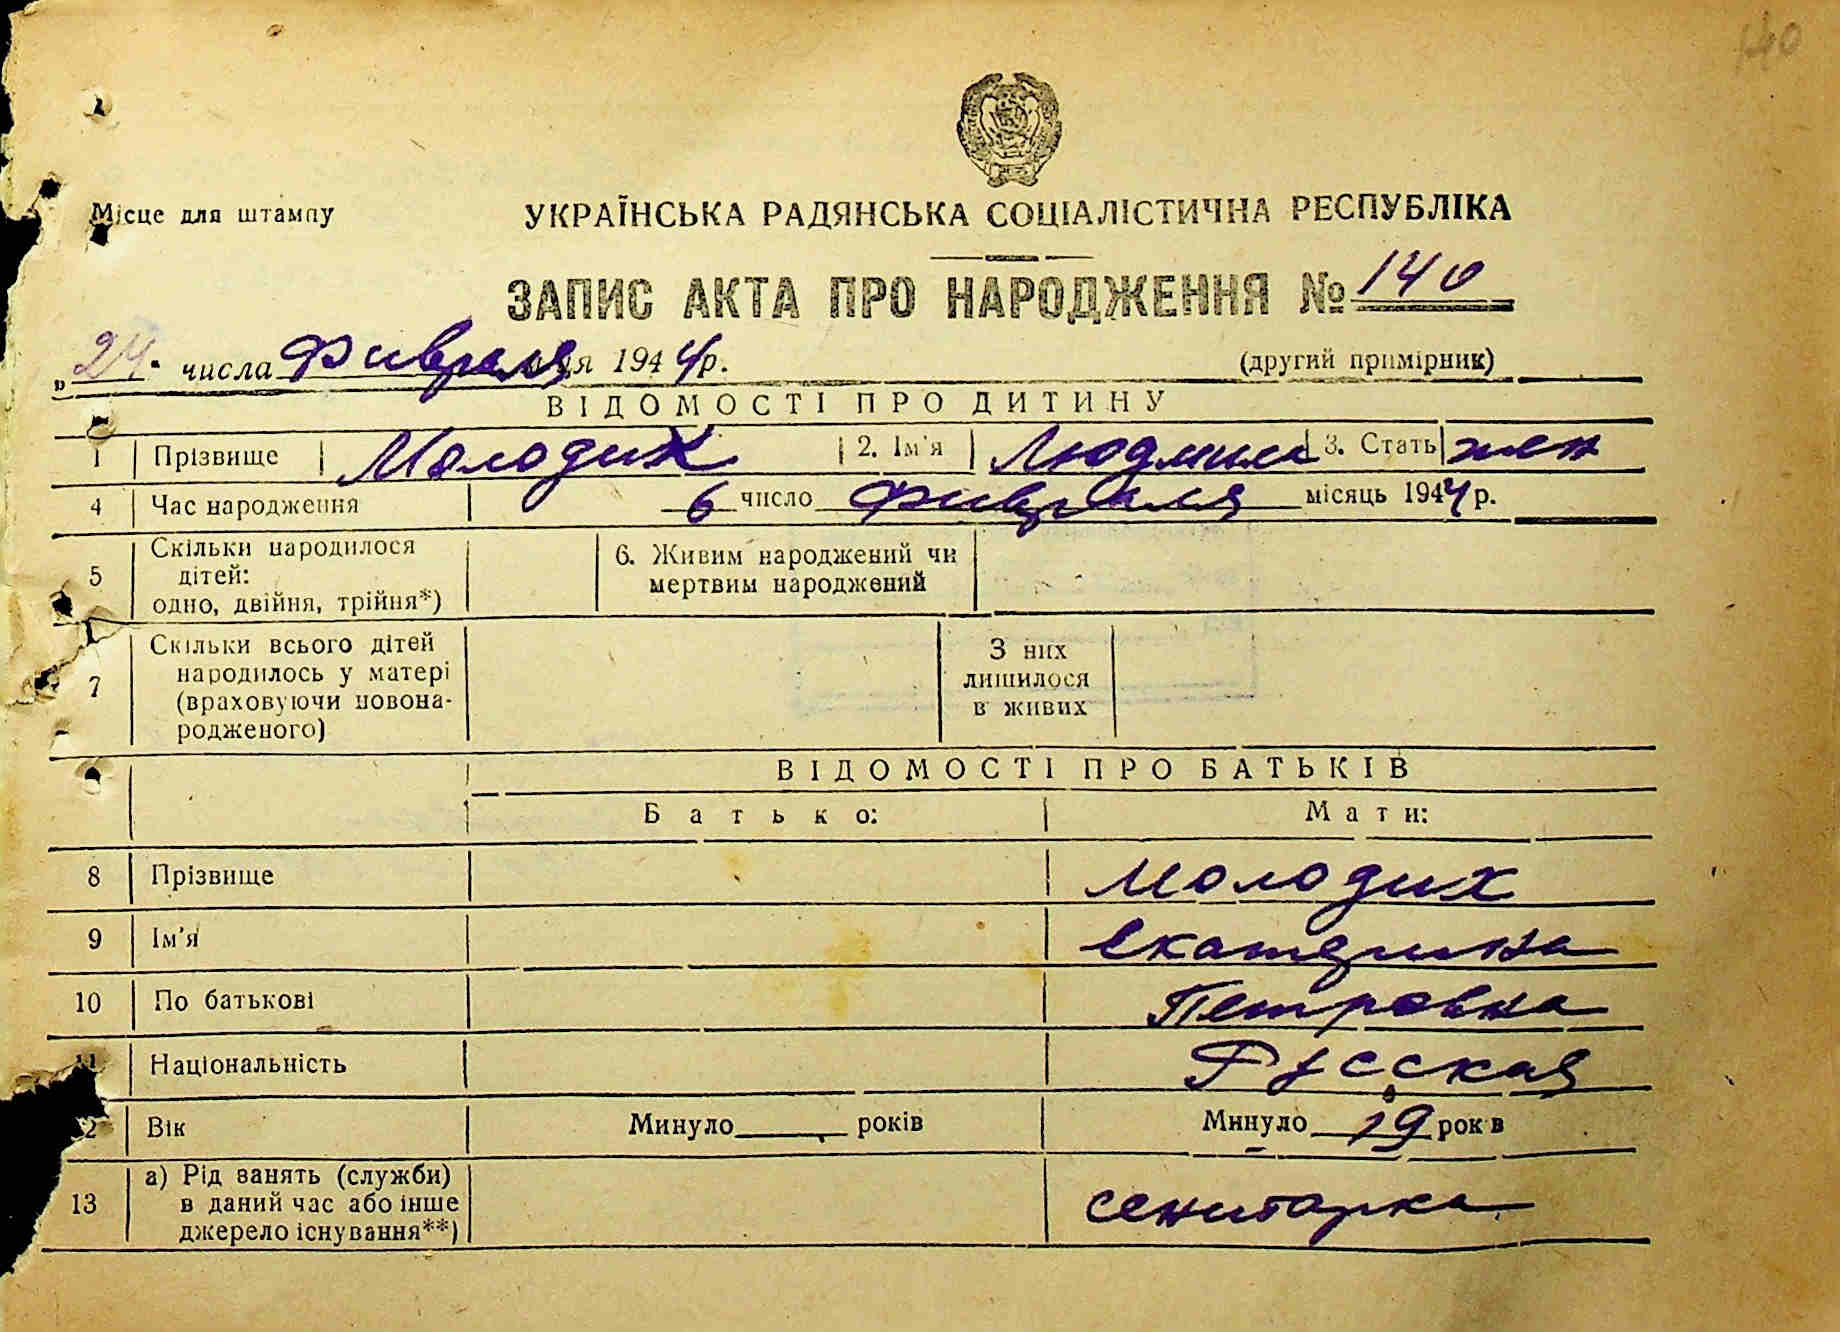 140
Місце для штампу
УКРАЇНСЬКА РАДЯНСЬКА СОЦІАЛІСТИЧНА РЕСПУБЛІКА
ЗАПИС АКТА ПРО НАРОДЖЕННЯ № 140
„24" числа Фивраля ця 1944 р. (другий примірник)
ВІДОМОСТІ ПРО ДИТИНУ
1 Прізвище Молодих 2. Ім'я Людмила 3. Стать жен
4 Час народження 6 число Фивраля місяць 1944 р.
5 Скільки народилося дітей: одно, двійня, трійня*) 6. Живим народжений чи мертвим народжений
7 Скільки всього дітей народилось у матері (враховуючи новонародженого) З них лишилося в живих
ВІДОМОСТІ ПРО БАТЬКІВ
Батько: Мати:
8 Прізвище Молодих
9 Ім'я Екатярина
10 По батькові Петровна
11 Національність Русская
12 Вік Минуло років Минуло 19 років
13 а) Рід занять (служби) в даний час або інше джерело існування**) сенитарка